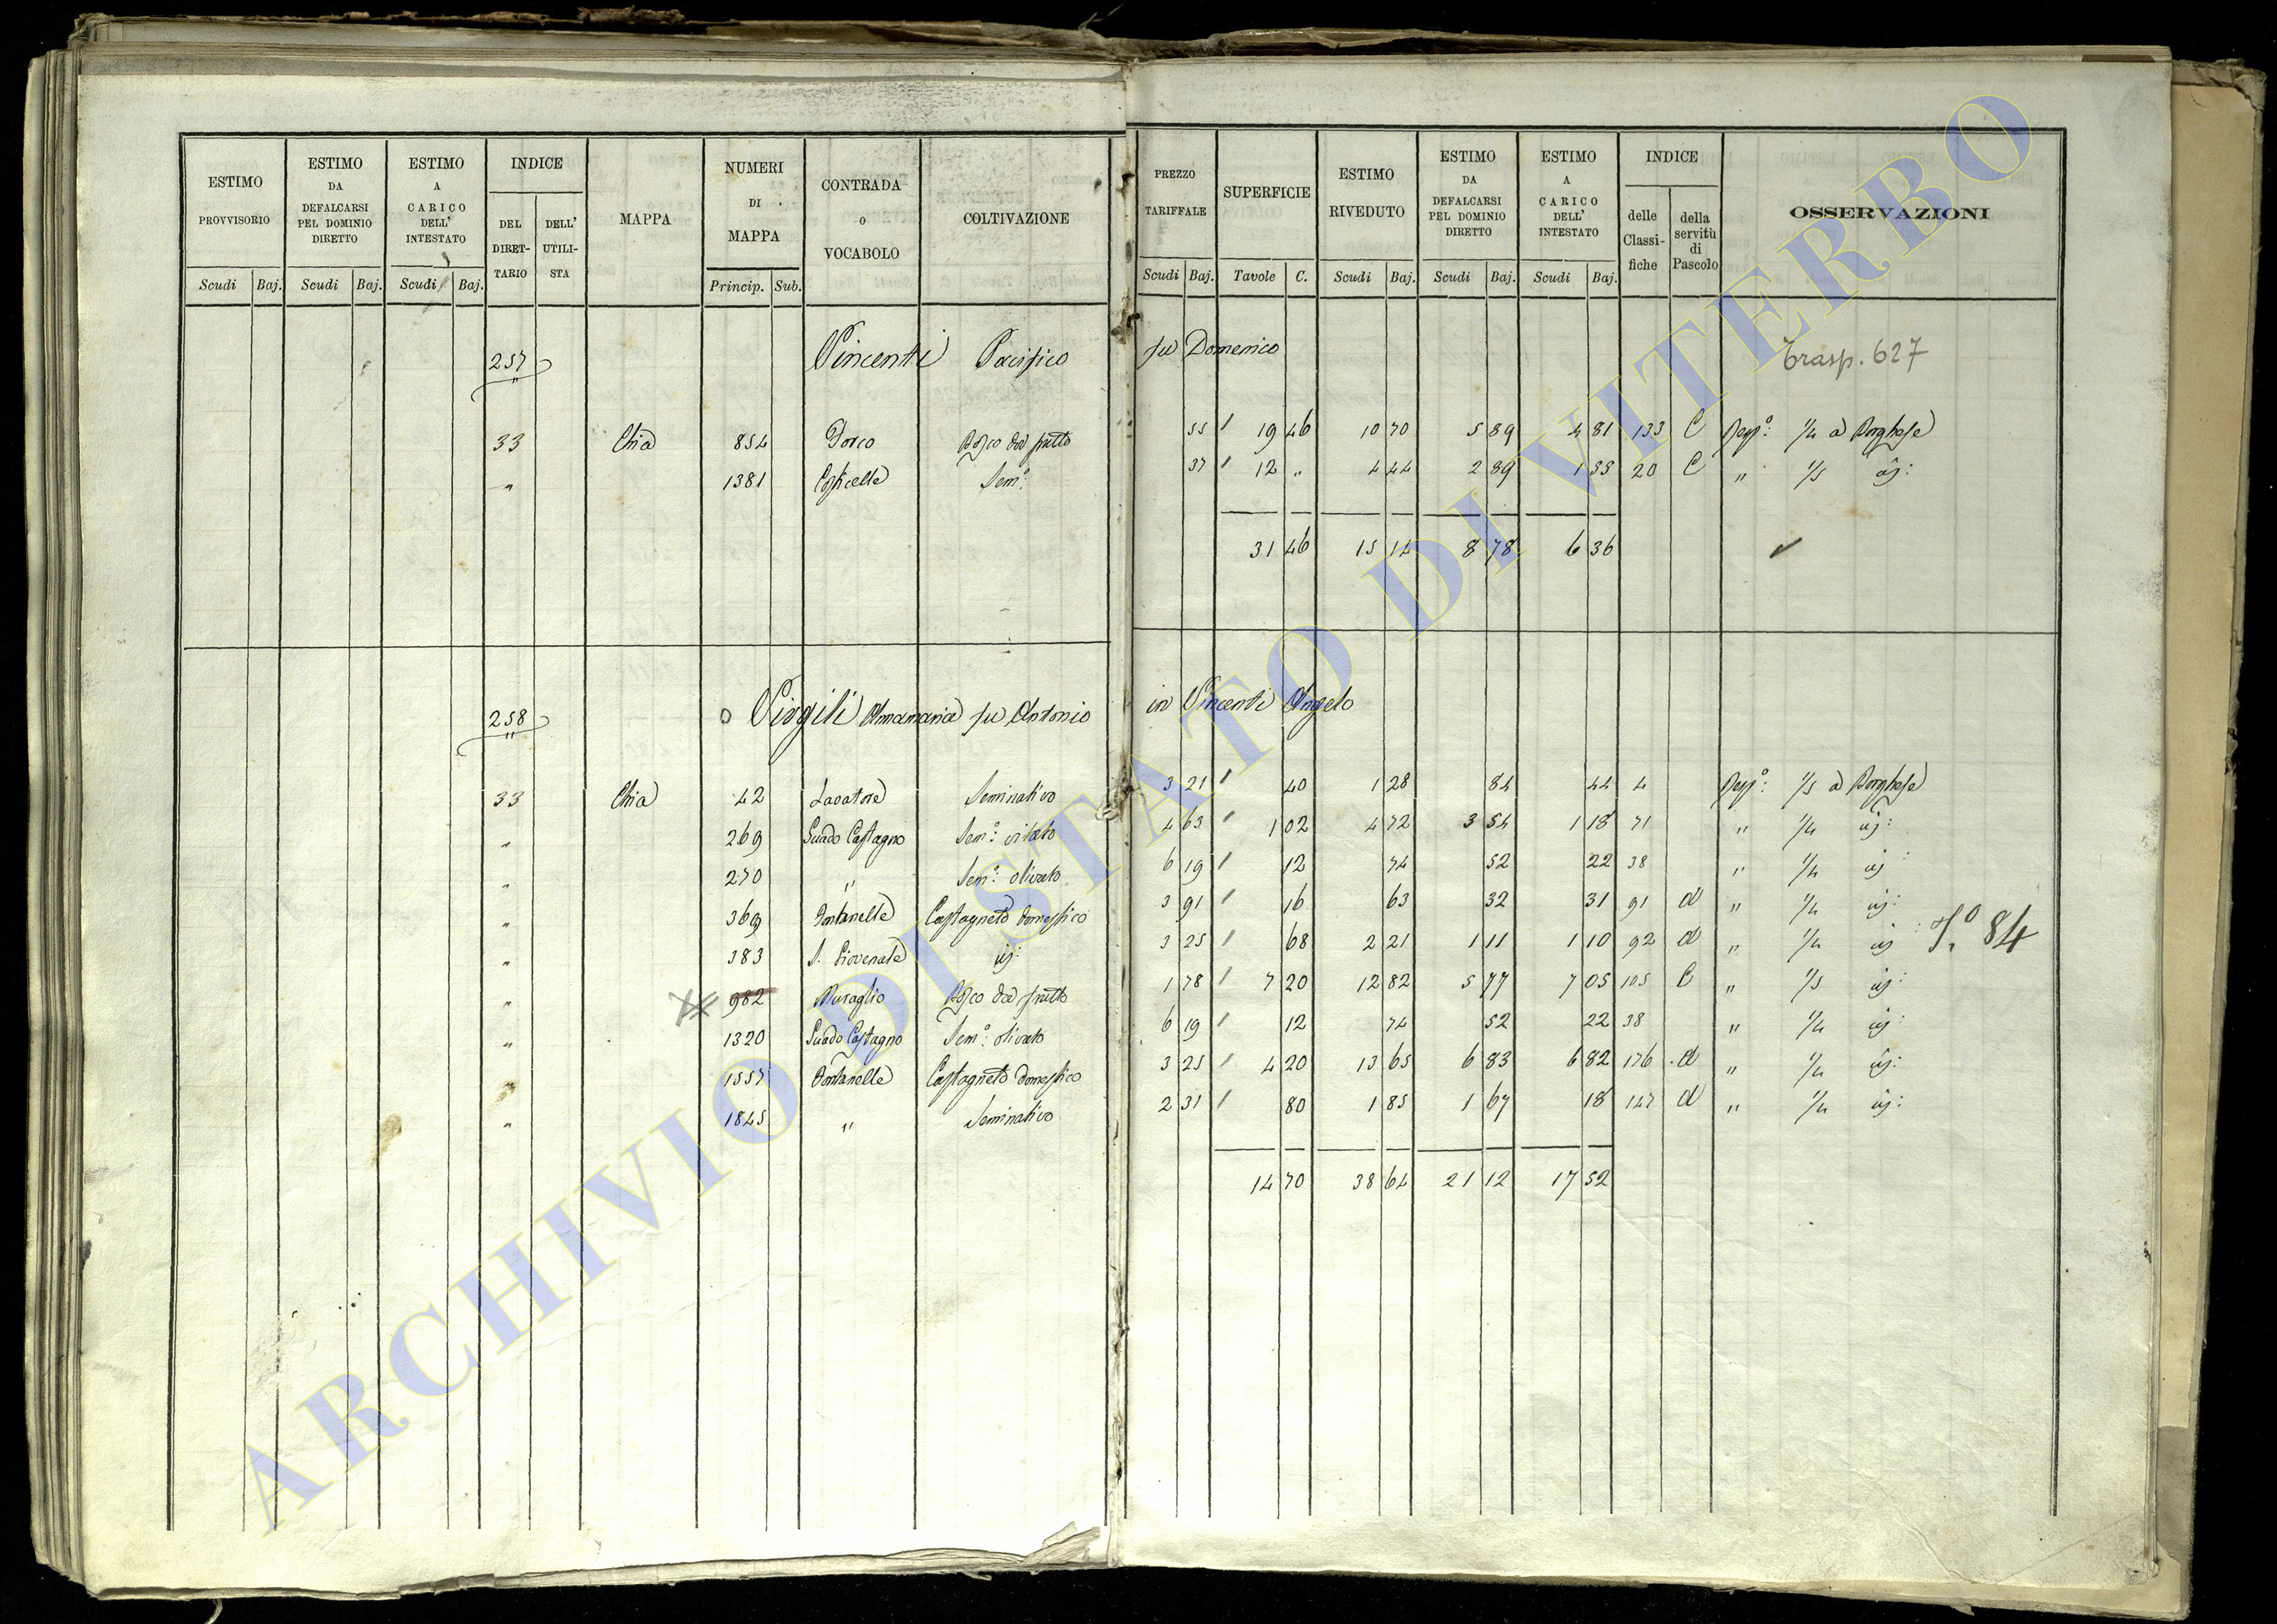 ESTIMO PROVVISORIO Scudi Baj.
ESTIMO DA DEFALCARSI PEL DOMINIO DIRETTO Scudi Baj.
ESTIMO A CARICO DELL' INTESTATO Scudi Baj.
INDICE DEL DIRET-TARIO DELL' UTILI-STA
MAPPA
NUMERI DI MAPPA Princip. Sub.
CONTRADA o VOCABOLO
COLTIVAZIONE
PREZZO TARIFFALE Scudi Baj.
SUPERFICIE Tavole C.
ESTIMO RIVEDUTO Scudi Baj.
ESTIMO DA DEFALCARSI PEL DOMINIO DIRETTO Scudi Baj.
ESTIMO A CARICO DELL' INTESTATO Scudi Baj.
INDICE delle Classi-fiche della servitù di Pascolo
OSSERVAZIONI
257 Vincenti Pacifico fu Domenico Trasp. 627
33 Chia 854 Bosco da frutto 55 19 46 10 70 5 89 4 81 133 C Risp: 1/4 a Borghese
" 1381 Costicelle Sem: 37 12 " 4 44 2 89 1 55 20 C " 1/5 ij:
31 46 15 14 8 78 6 36
258 Virgili Annamaria fu Antonio in Vincenti Angelo
33 Chia 42 Lavatore Seminativo 3 21 40 1 28 84 44 4 Risp: 1/5 a Borghese
" 269 Guado Castagno Sem: vitato 4 63 1 02 4 72 3 54 1 18 71 " 1/4 ij:
" 270 " Sem: olivato 6 19 12 74 52 22 38 " 1/4 ij
" 369 Fontanelle Castagneto domestico 3 91 16 63 32 31 91 d " 1/4 ij:
" 383 S. Giovenale ij: 3 25 68 2 21 1 11 1 10 92 d " 1/4 ij: 84
" 982 Muraglio Bosco da frutto 1 78 7 20 12 82 5 77 7 05 105 C " 1/5 ij:
" 1320 Guado Castagno Sem: olivato 6 19 12 74 52 22 38 " 1/4 ij:
" 1557 Fontanelle Castagneto domestico 3 25 4 20 13 65 6 83 6 82 176 d " 1/4 ij:
" 1845 " Seminativo 2 31 80 1 85 1 67 18 147 d " 1/4 ij:
14 70 38 64 21 12 17 52
ARCHIVIO DI STATO DI VITERBO